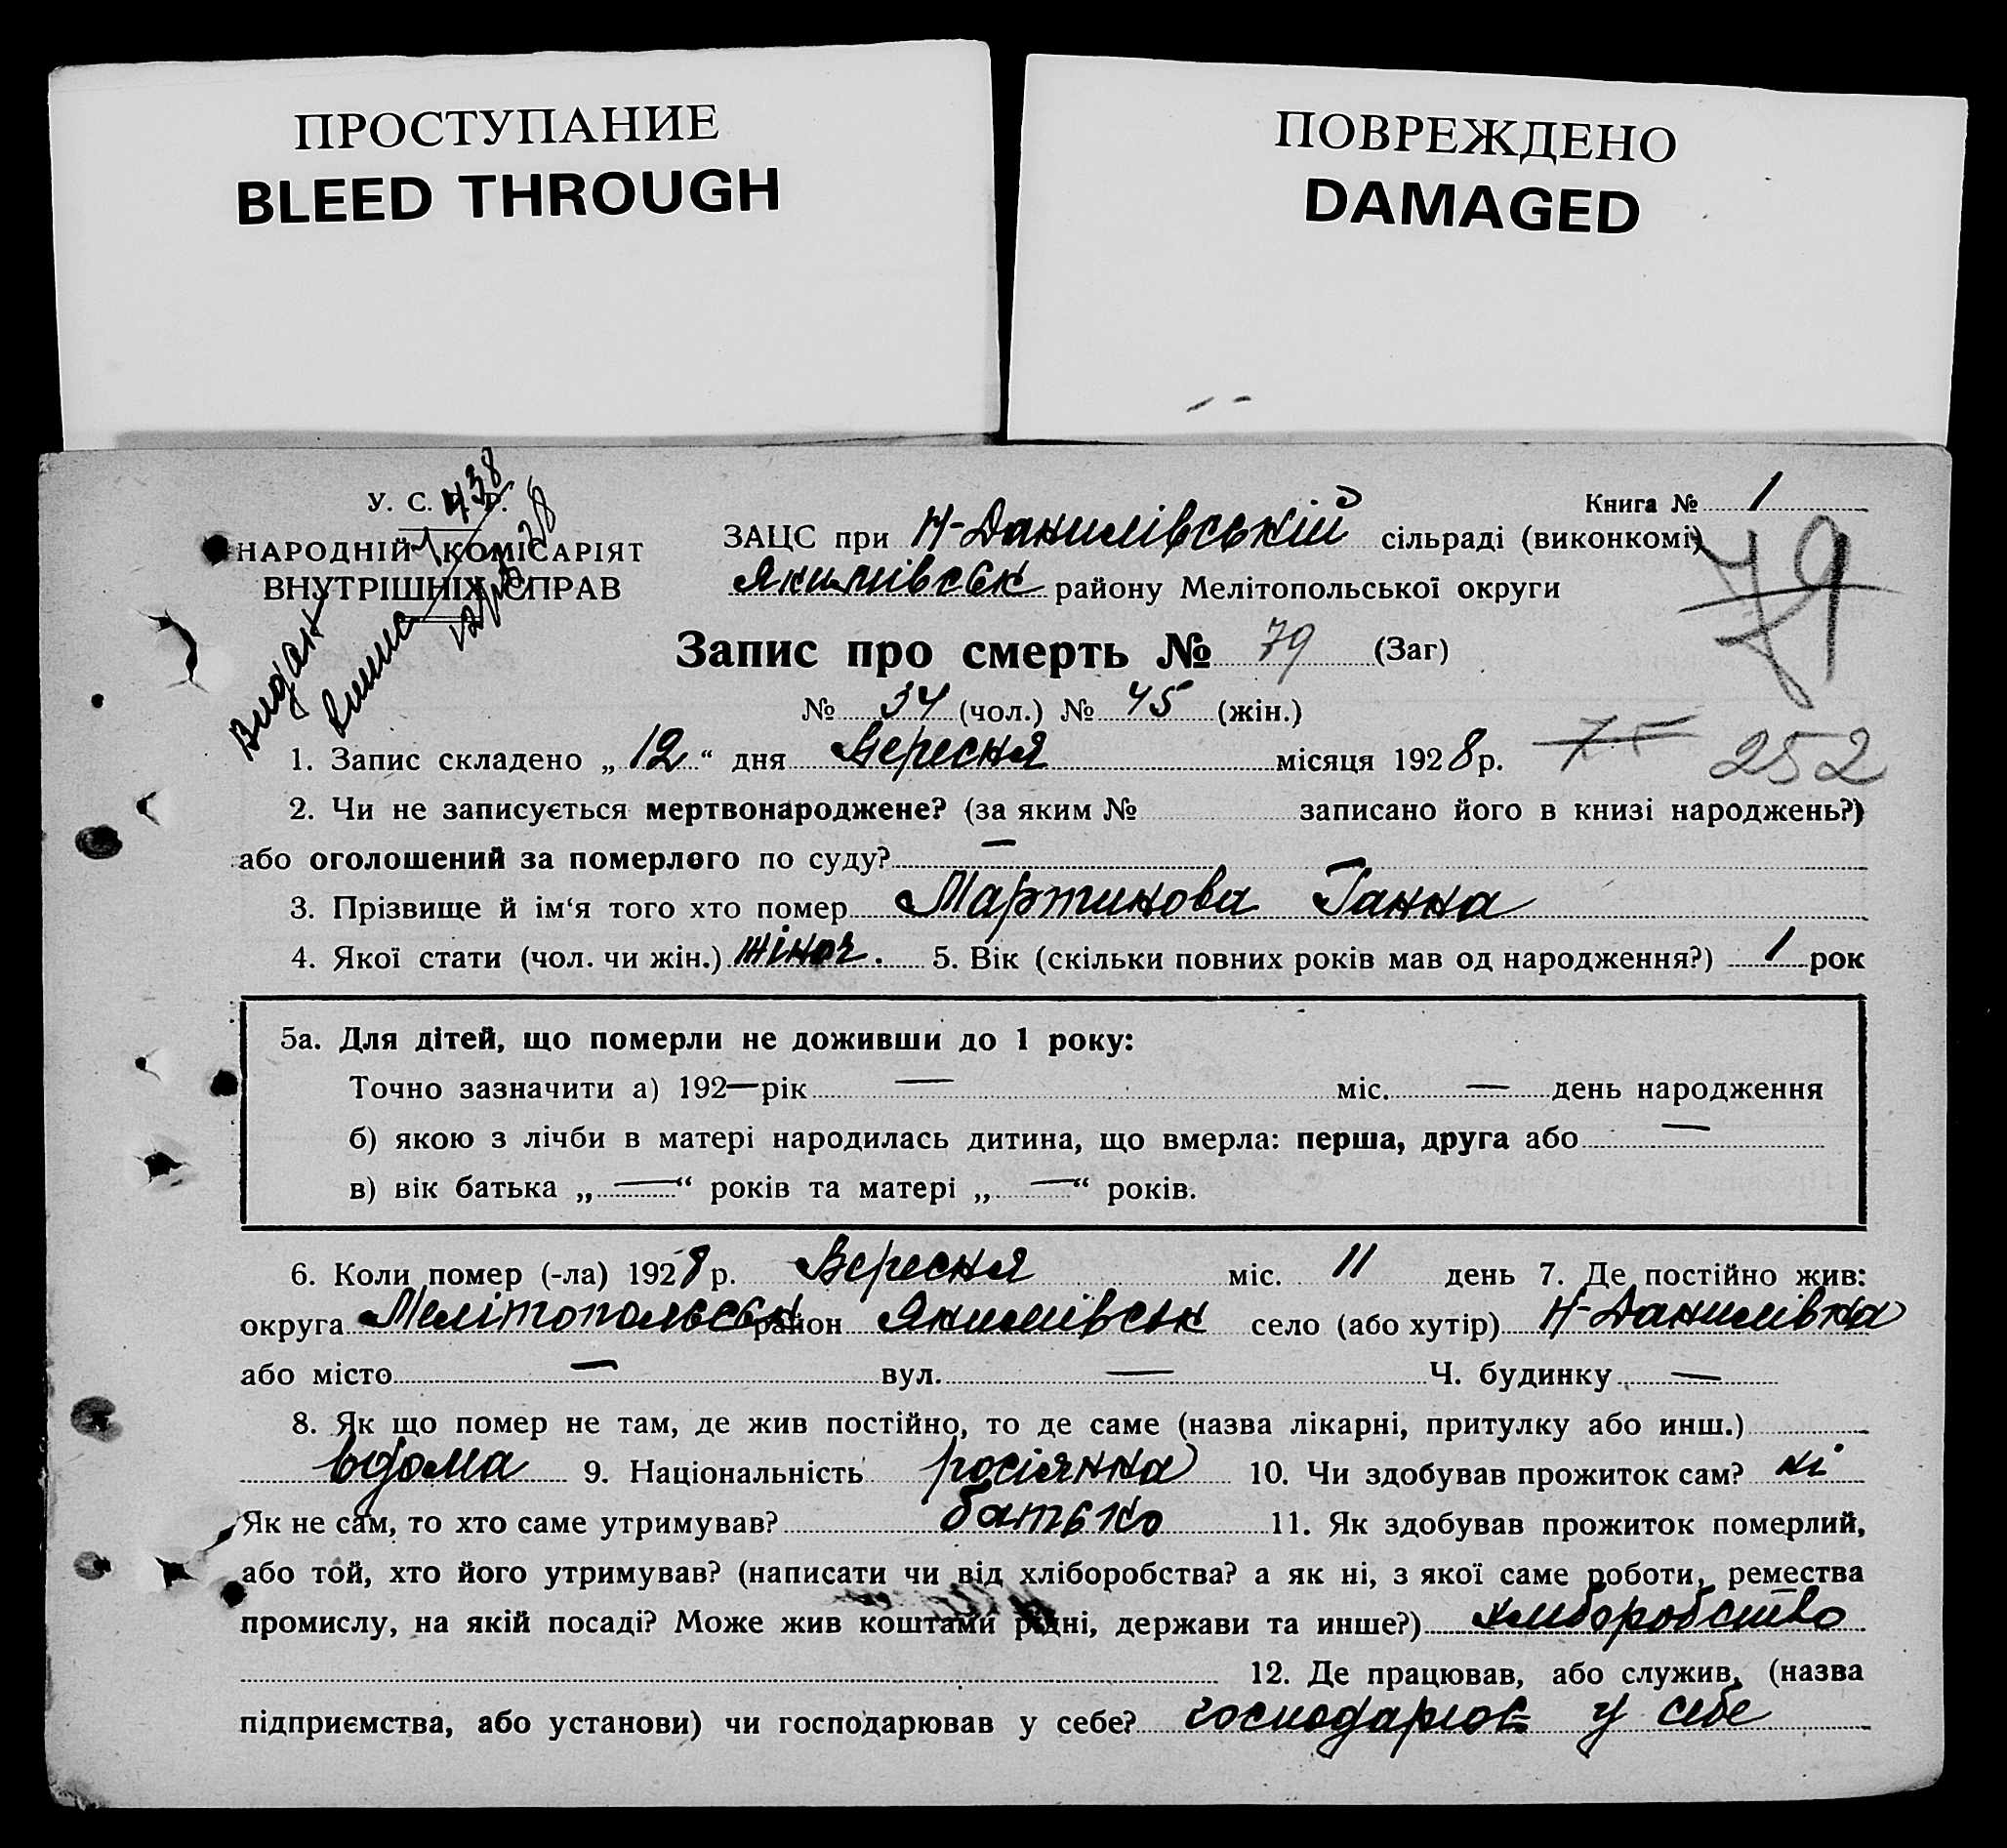 ПРОСТУПАНИЕ
BLEED THROUGH
ПОВРЕЖДЕНО
DAMAGED
У. С. Р. Р.
438
НАРОДНІЙ КОМІСАРІЯТ
ВНУТРІШНІХ СПРАВ
Видан
Книга № 1
ЗАЦС при Н-Данилівській сільраді (виконкомі)
Якимівськ району Мелітопольської округи
79
Запис про смерть № 79 (Заг)
№ 34 (чол.) № 45 (жін.)
1. Запис складено „ 12 “ дня Вересня місяця 1928 р.
75 252
2. Чи не записується мертвонароджене? (за яким № записано його в книзі народжень?)
або оголошений за померлого по суду? —
3. Прізвище й ім‘я того хто помер Мартинова Ганна
4. Якої стати (чол. чи жін.) жіноч. 5. Вік (скільки повних років мав од народження?) 1 рок
5а. Для дітей, що померли не доживши до 1 року:
Точно зазначити а) 192— рік — міс. — день народження
б) якою з лічби в матері народилась дитина, що вмерла: перша, друга або —
в) вік батька „ — “ років та матері „ — “ років.
6. Коли помер (-ла) 1928 р. Вересня міс. 11 день 7. Де постійно жив:
округа Мелітопольськ район Якимівськ село (або хутір) Н-Данилівка
або місто — вул. — Ч. будинку —
8. Як що помер не там, де жив постійно, то де саме (назва лікарні, притулку або инш.)
вдома 9. Національність росіянка 10. Чи здобував прожиток сам? ні
Як не сам, то хто саме утримував? батько 11. Як здобував прожиток померлий,
або той, хто його утримував? (написати чи від хліборобства? а як ні, з якої саме роботи, ремества
промислу, на якій посаді? Може жив коштами рідні, держави та инше?) хліборобство
12. Де працював, або служив, (назва
підприємства, або установи) чи господарював у себе? господарюв у себе